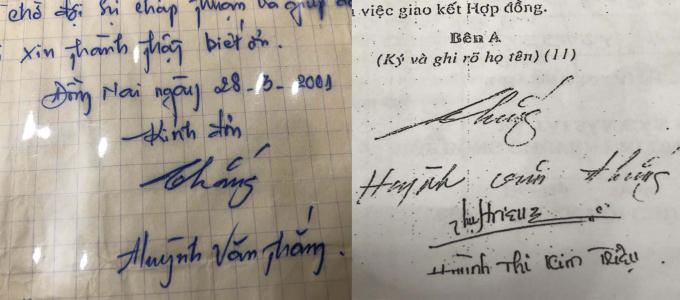 chờ đội sự chấp thuận và giúp
xin thành thật biết ơn.
Đồng Nai ngày 28-3-2001
Kính đơn
Thắng
Huỳnh Văn Thắng.
việc giao kết Hợp đồng.
Bên A
(Ký và ghi rõ họ tên) (11)
Thắng
Huỳnh văn Thắng
Huỳnh Thi Kim Triều